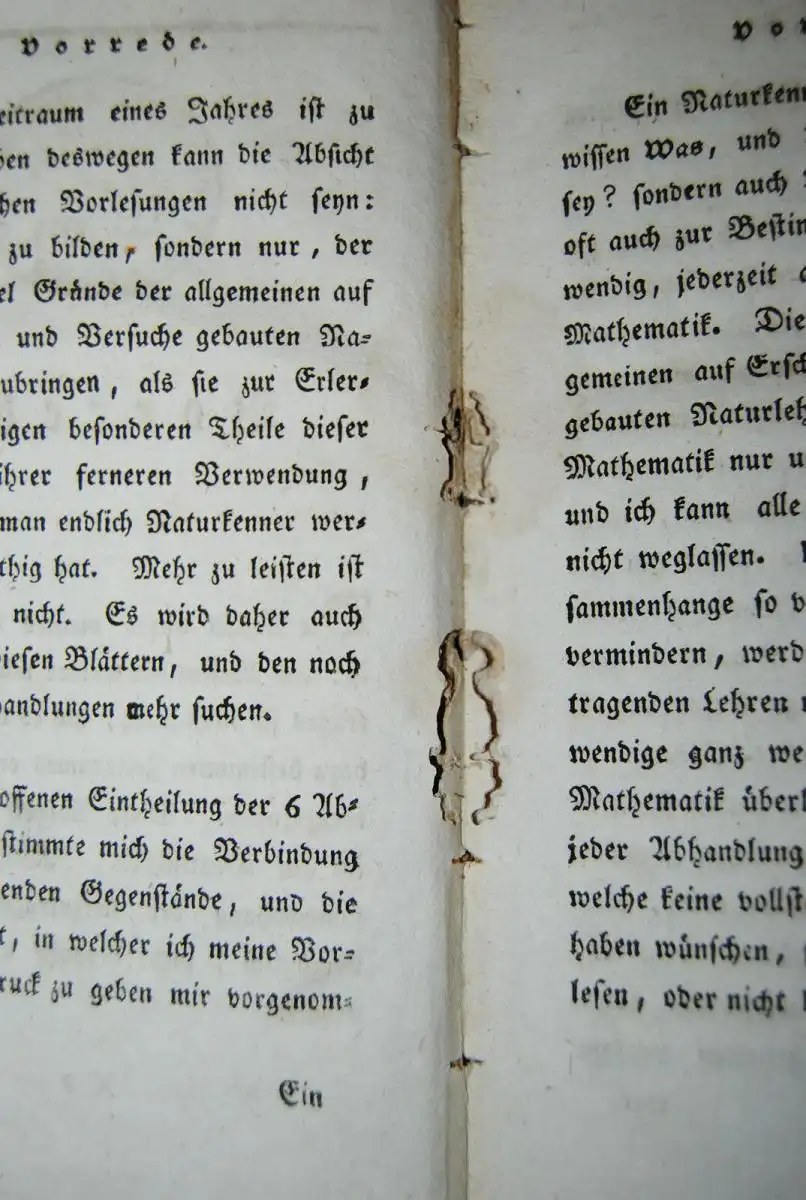 Vorrede.
eitraum eines Jahres ist zu
ben deswegen kann die Absicht
chen Vorlesungen nicht seyn:
zu bilden, sondern nur, der
el Gründe der allgemeinen auf
und Versuche gebauten Na-
ubringen, als sie zur Erler-
igen besonderen Theile dieser
ihrer ferneren Verwendung,
man endlich Naturkenner wer-
thig hat. Mehr zu leisten ist
nicht. Es wird daher auch
iesen Blättern, und den noch
handlungen mehr suchen.
offenen Eintheilung der 6 Ab-
stimmte mich die Verbindung
enden Gegenstände, und die
t, in welcher ich meine Vor-
ruck zu geben mir vorgenom-
Ein
Vor
Ein Naturkenn
wissen Was, und
sey? sondern auch
oft auch zur Bestim
wendig, jederzeit
Mathematik. Die
gemeinen auf Ersch
gebauten Naturleh
Mathematik nur u
und ich kann alle
nicht weglassen.
sammenhange so v
vermindern, werd
tragenden Lehren
wendige ganz we
Mathematik überl
jeder Abhandlung
welche keine vollst
haben wünschen,
lesen, oder nicht